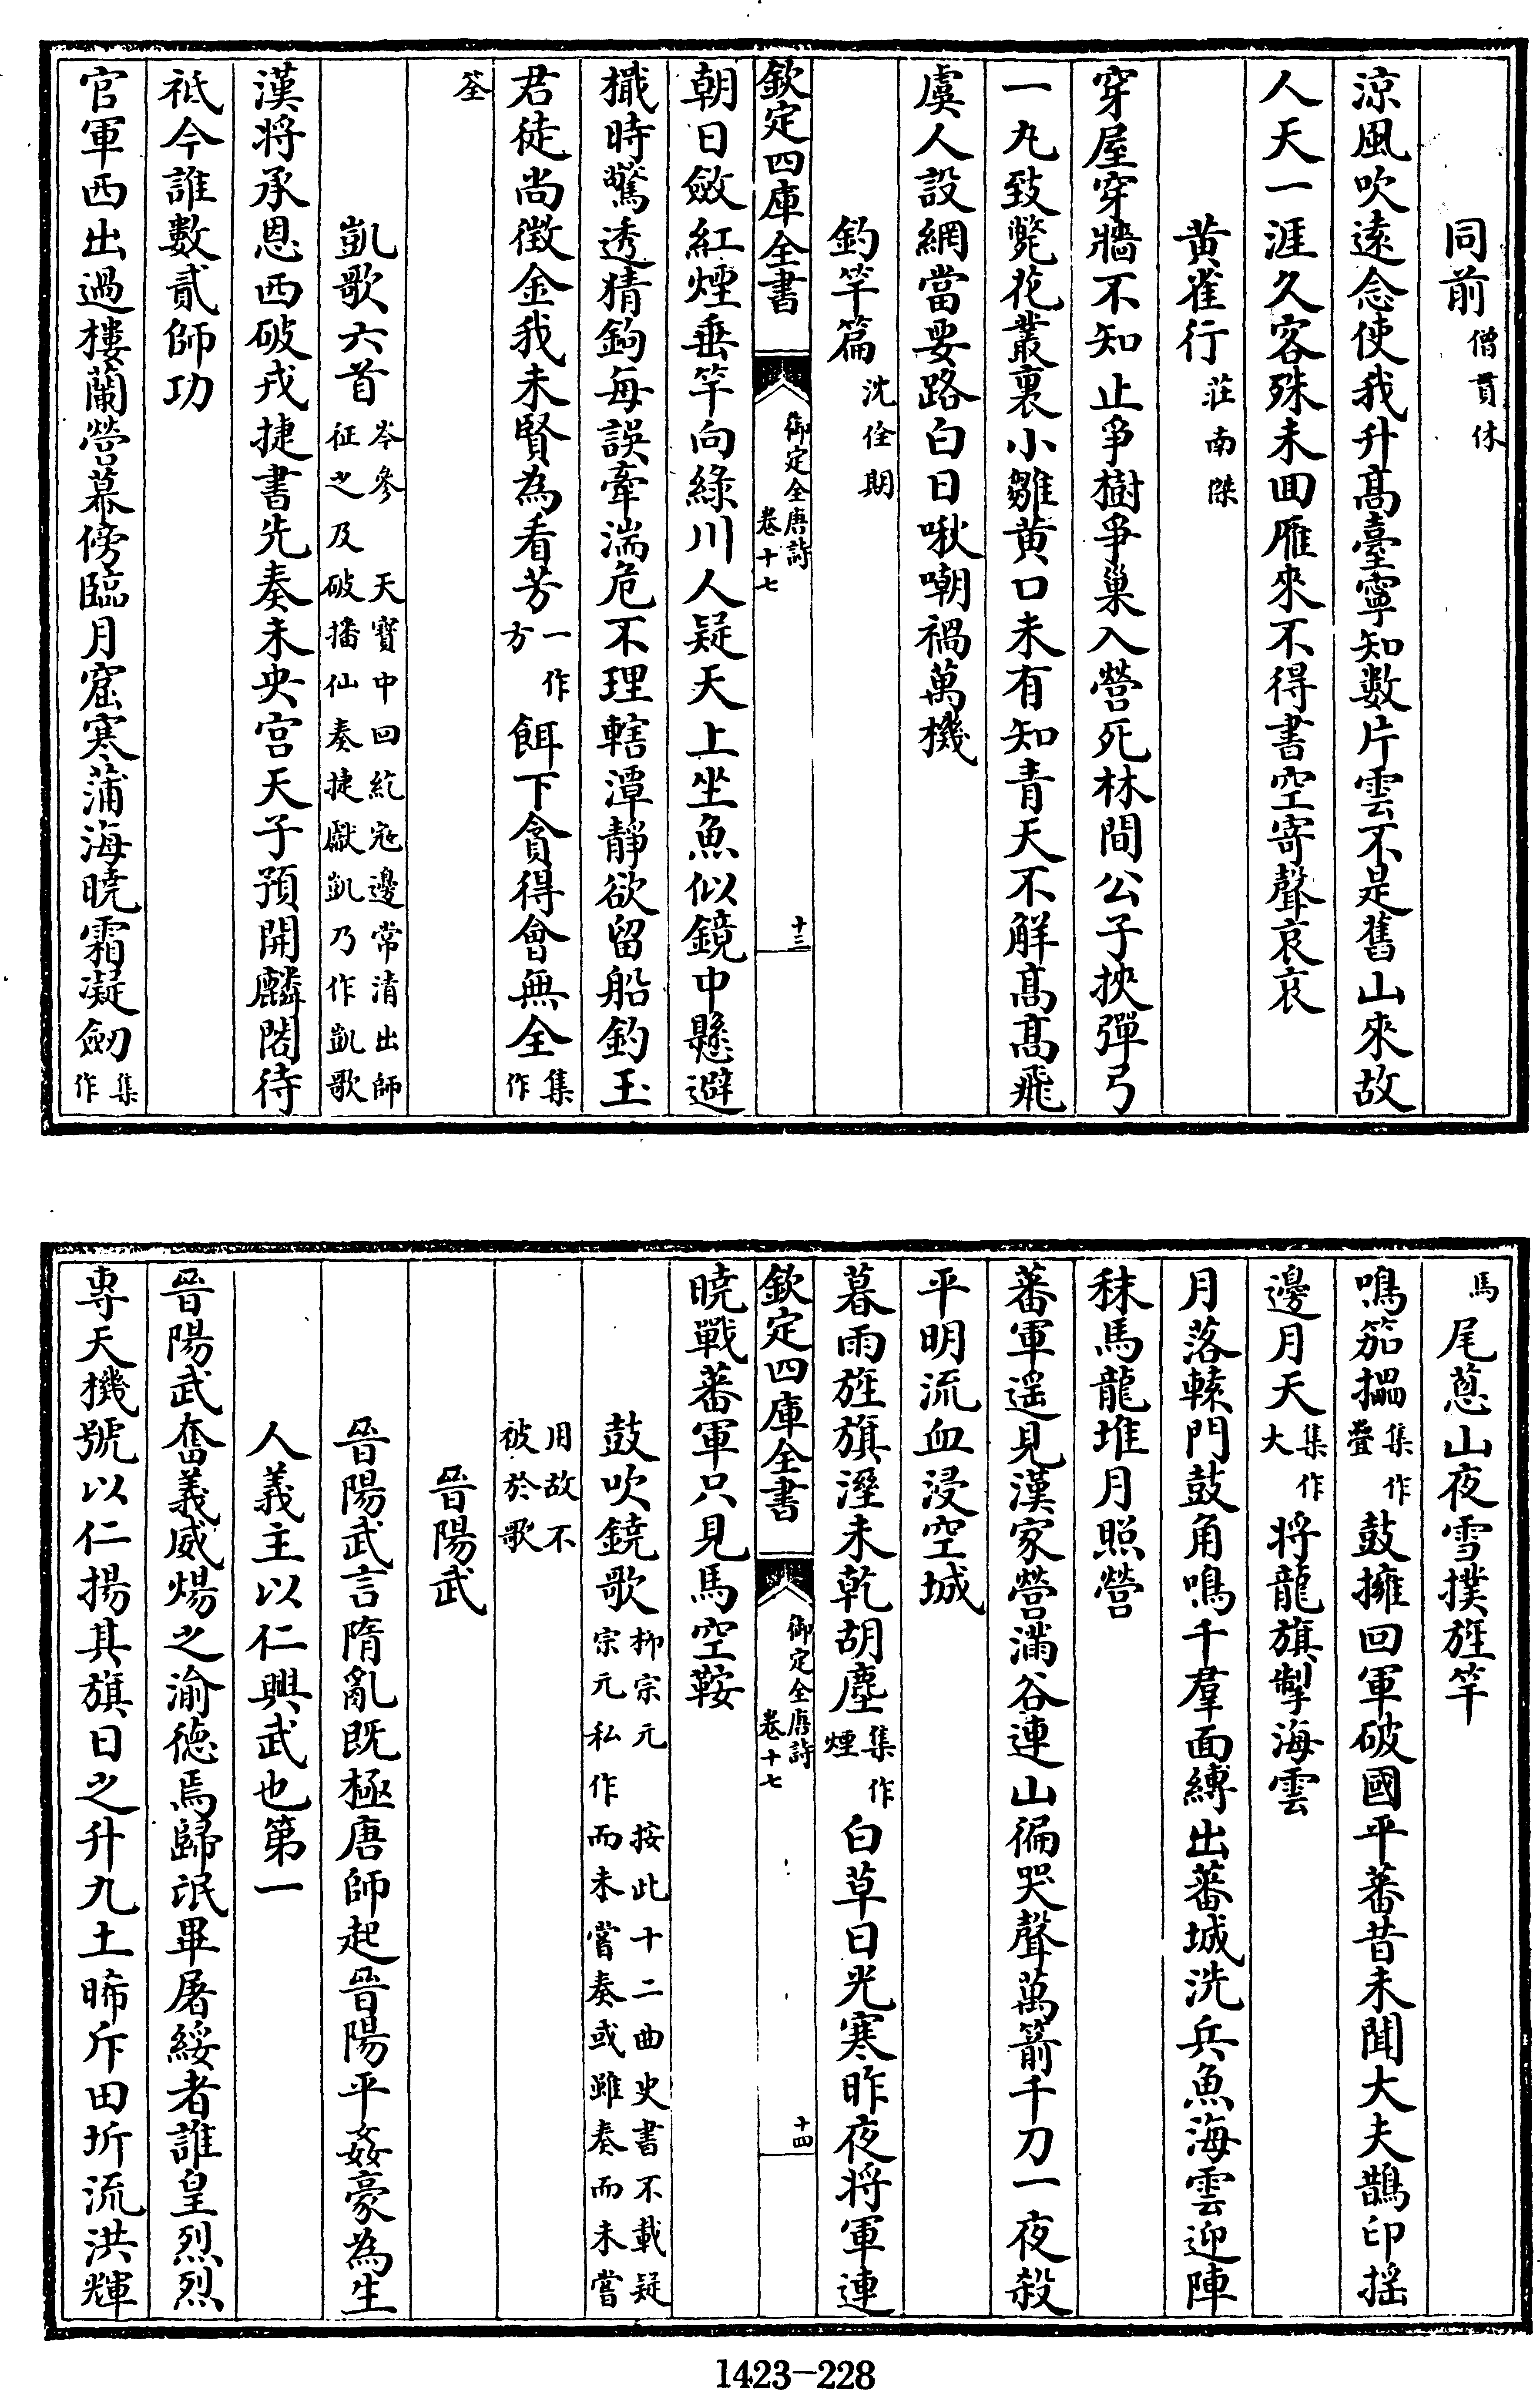 同前僧貫休
涼風吹逺念使我升髙臺寧知數片雲不是舊山來故
人天一涯久客殊未回雁來不得書空寄聲哀哀
黄雀行莊南傑
穿屋穿牆不知止爭樹爭巢入營死林間公子挾彈弓
一丸致斃花叢裏小雛黄口未有知青天不解髙髙飛
虞人設網當要路白日啾嘲禍萬機
釣竿篇沈佺期
欽定四庫全書 御定全唐詩卷十七 十三
朝日斂紅煙垂竿向綠川人疑天上坐魚似鏡中懸避
檝時驚透猜鉤每誤牽湍危不理轄潭靜欲留船釣玉
君徒尚徴金我未賢為看芳一作方餌下貪得會無全集作
筌
凱歌六首岑參 天寶中回紇宼邊常清出師征之及破播仙奏捷獻凱乃作凱歌
漢將承恩西破戎捷書先奏未央宫天子預開麟閣待
祗今誰數貳師功
官軍西出過樓蘭營幕傍臨月窟寒蒲海曉霜凝劒集作
馬尾葱山夜雪撲旌竿
鳴笳擂集作疊鼓擁回軍破國平蕃昔未聞大夫鵲印揺
邊月天集作大將龍旗掣海雲
月落轅門鼓角鳴千羣面縛出蕃城洗兵魚海雲迎陣
秣馬龍堆月照營
蕃軍遥見漢家營滿谷連山徧哭聲萬箭千刀一夜殺
平明流血浸空城
暮雨旌旗溼未乾胡塵集作煙白草日光寒昨夜將軍連
曉戰蕃軍只見馬空鞍
欽定四庫全書 御定全唐詩卷十七 十四
鼓吹鐃歌柳宗元 按此十二曲史書不載疑宗元私作而未嘗奏或雖奏而未嘗
用故不被於歌
晉陽武
晉陽武言隋亂既極唐師起晉陽平姦豪為生
人義主以仁興武也第一
晉陽武奮義威煬之渝德焉歸氓畢屠綏者誰皇烈烈
専天機號以仁揚其旗日之升九土晞斥田圻流洪輝
1423-228